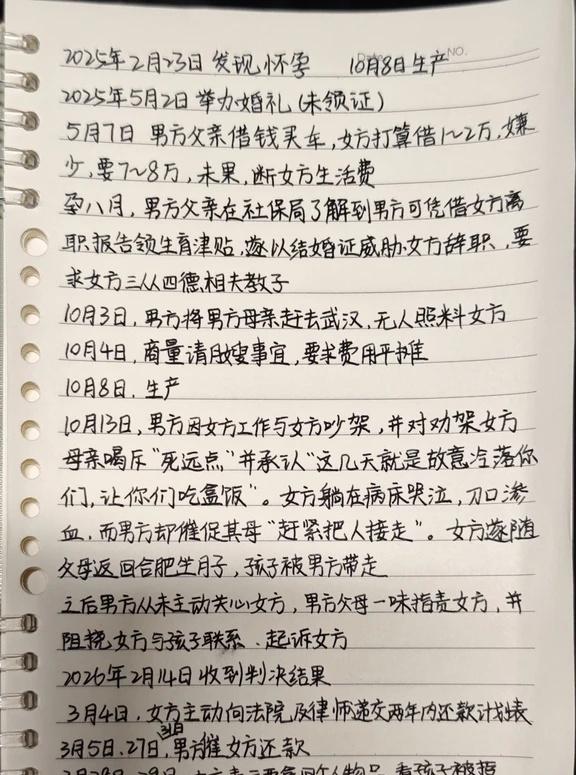 Date NO.
2025年2月23日 发现怀孕 10月8日生产
2025年5月2日 举办婚礼(未领证)
5月7日 男方父亲借钱买车,女方打算借1~2万,嫌
少,要7~8万,未果,断女方生活费
孕八月,男方父亲在社保局了解到男方可凭借女方离
职报告领生育津贴,遂以结婚证威胁女方辞职,要
求女方三从四德相夫教子
10月3日,男方将男方母亲赶去武汉,无人照料女方
10月4日,商量请月嫂事宜,要求费用平摊
10月8日.生产
10月13日,男方因女方工作与女方吵架,并对劝架女方
母亲喝斥"死远点"并承认"这几天就是故意冷落你
们,让你们吃盒饭"。女方躺在病床哭泣,刀口渗
血,而男方却催促其母"赶紧把人接走"。女方遂随
父母返回合肥坐月子,孩子被男方带走
之后男方从未主动关心女方,男方父母一味指责女方,并
阻挠女方与孩子联系.起诉女方
2026年2月14日收到判决结果
3月4日,女方主动向法院及律师递交两年内还款计划表
3月5日.27日,31日男方催女方还款